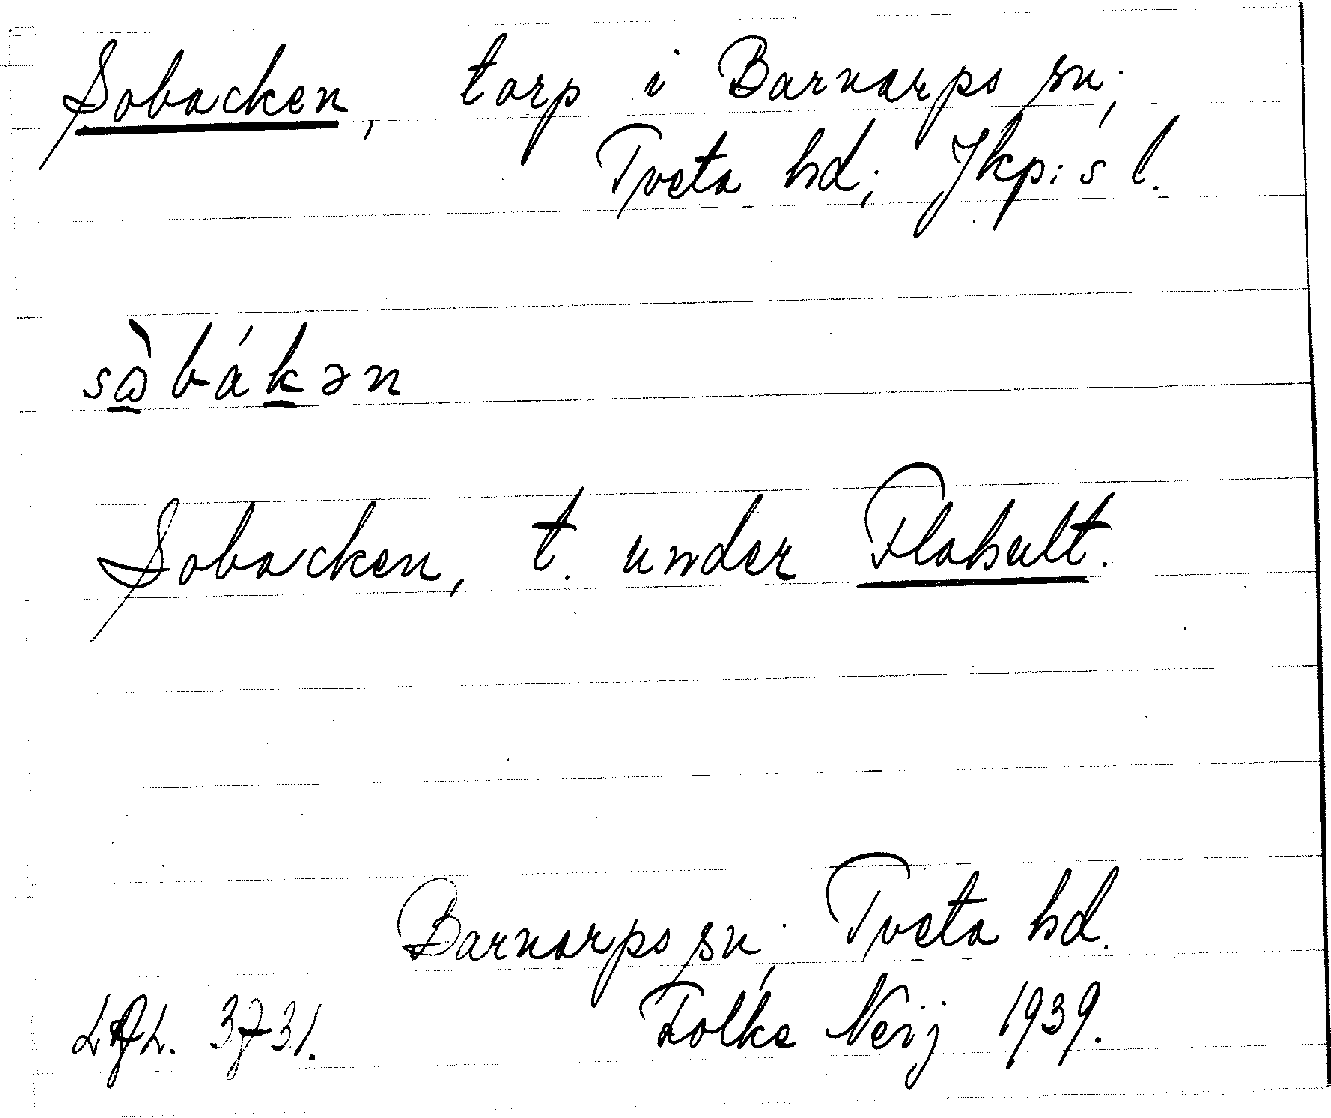 Sobacken, torp i Barnarps sn;
Tveta hd; Jkp:s l.
sꙍ̀bákən
Sobacken, t. under Flahult.
Barnarps sn; Tveta hd.
3731. Folke Neij 1939.